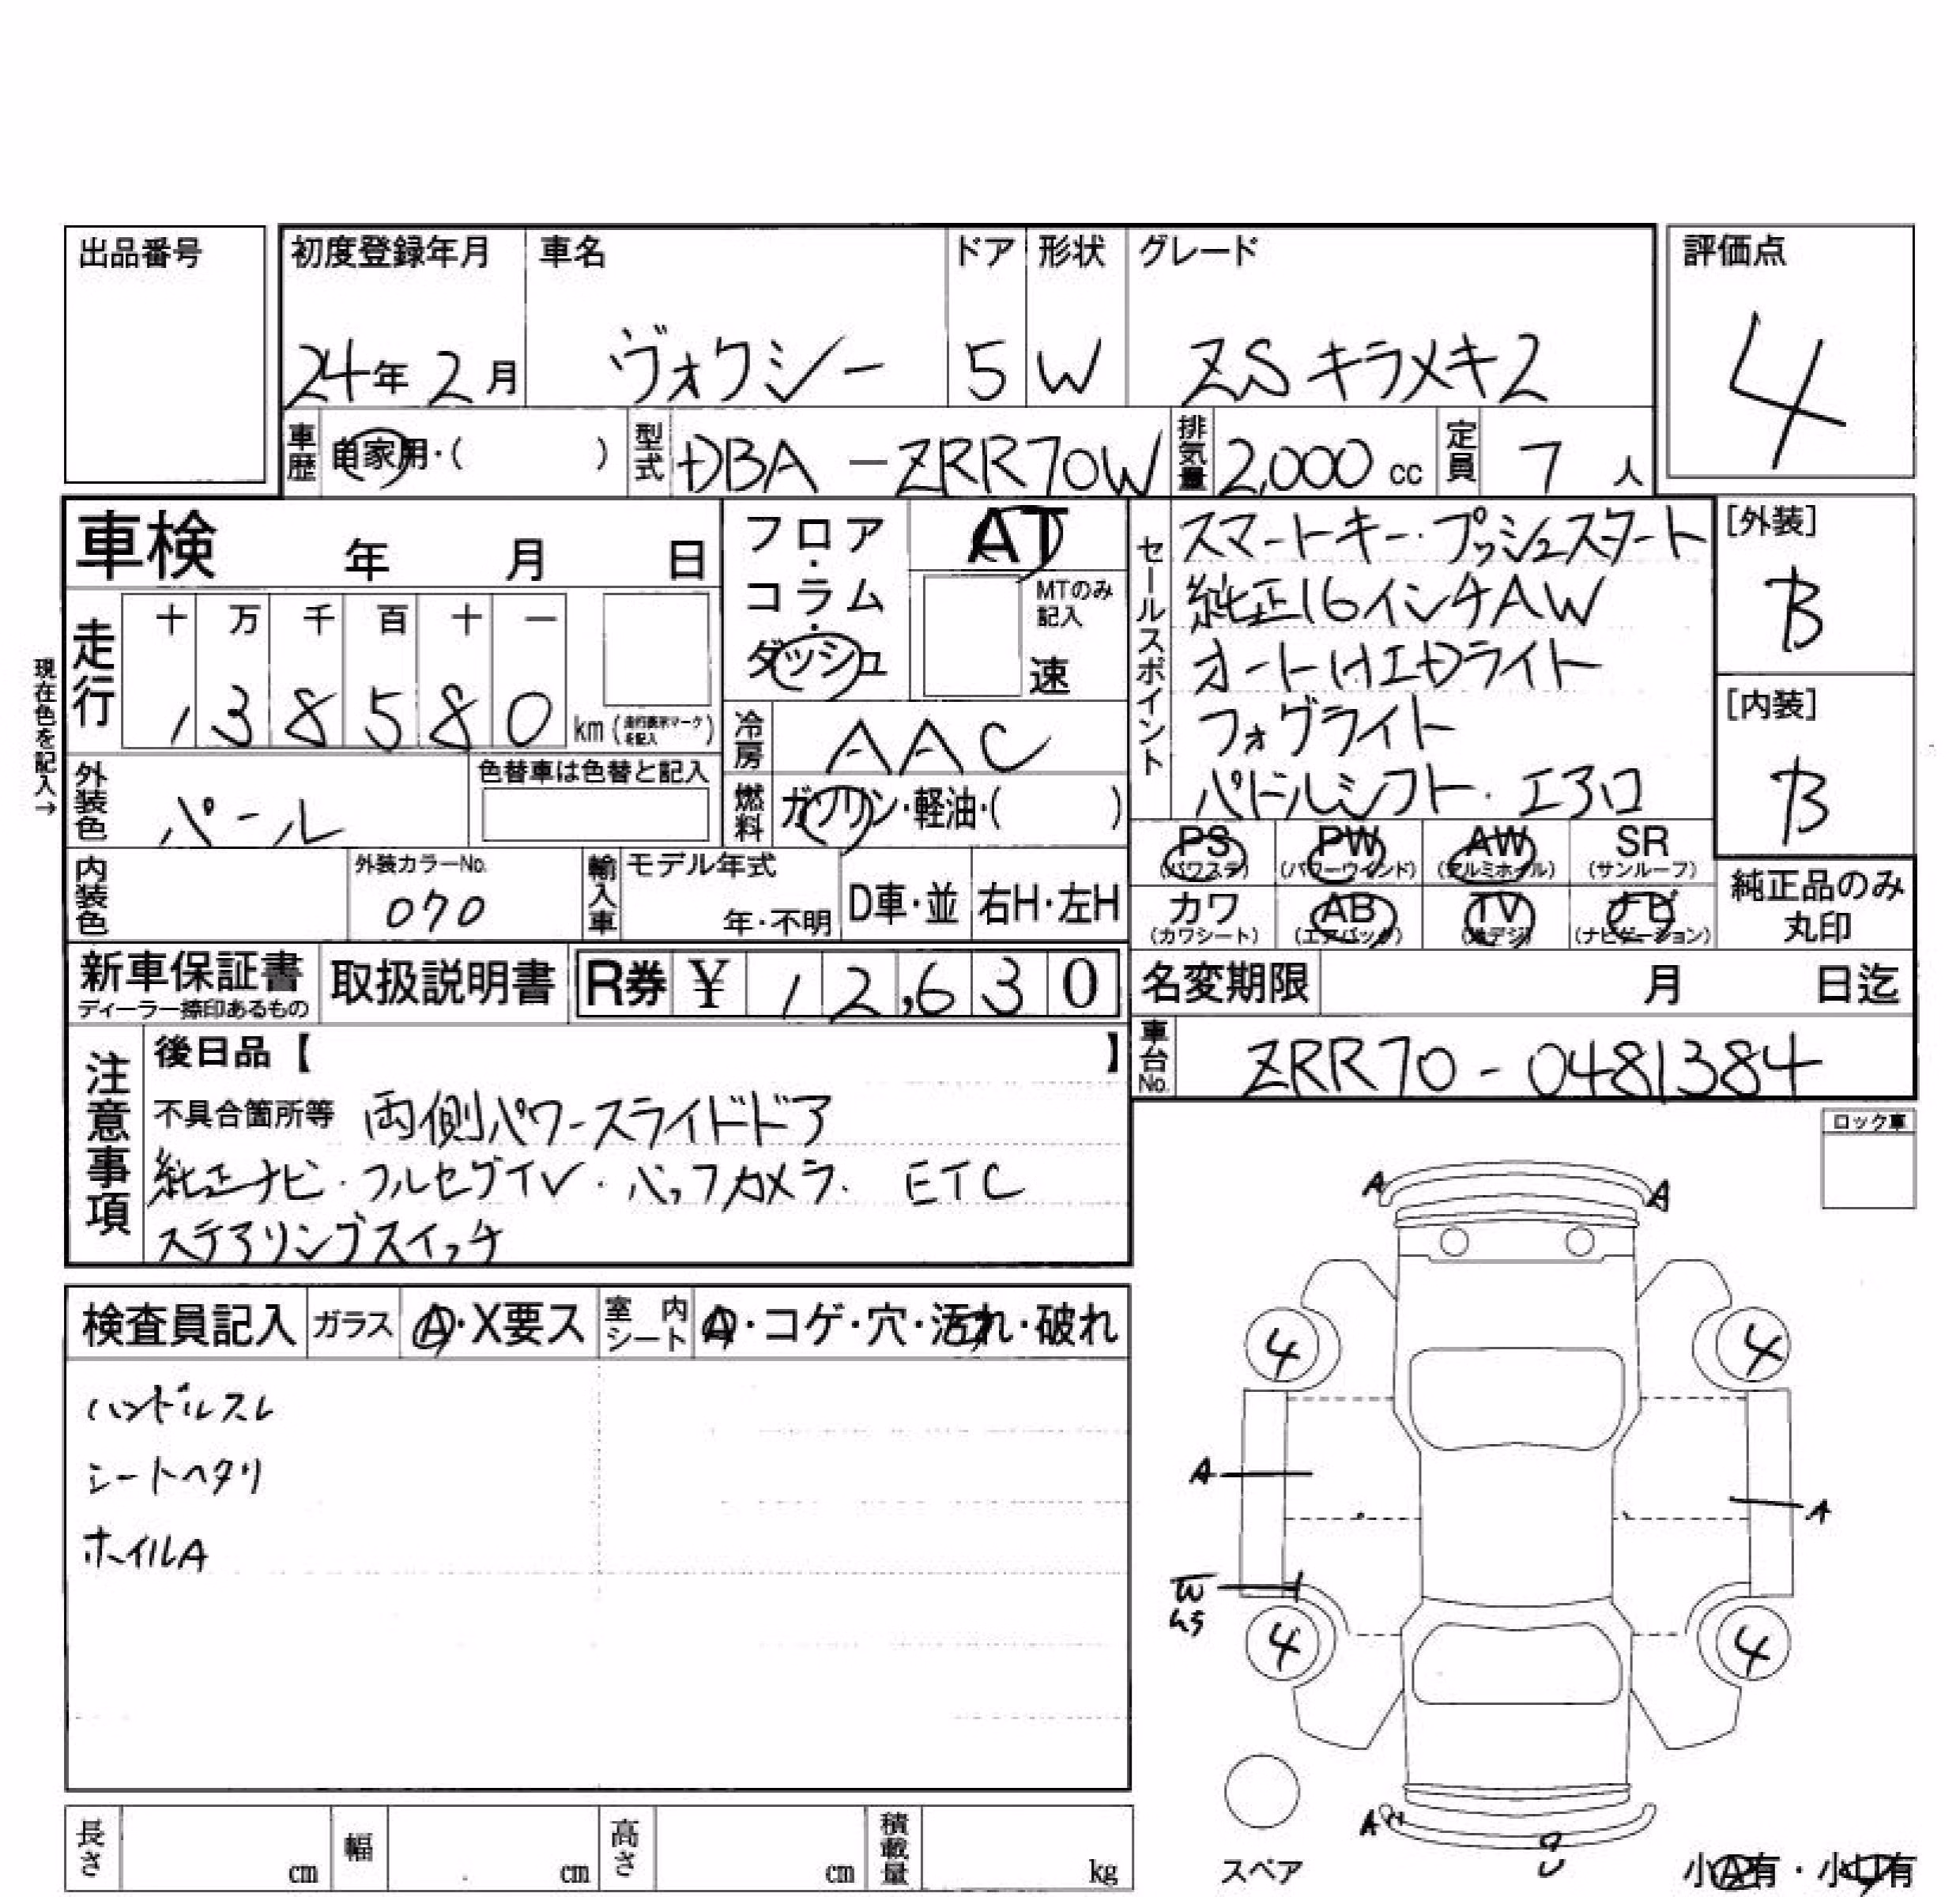 出品番号
初度登録年月 車名 ドア 形状 グレード 評価点
24年 2月 ヴォクシー 5 W ZS キラメキ2 4
車歴 自家用・( ) 型式 DBA-ZRR70W 排気量 2,000 cc 定員 7 人
車検 年 月 日
フロア・コラム・ダッシュ
AT
MTのみ記入
速
走行 十 万 千 百 十 一
138580 km (走行表示マークを記入)
現在色を記入→
冷房 AAC
外装色 パール
色替車は色替と記入
燃料 ガソリン・軽油・( )
内装色
外装カラーNo.
070
輸入車 モデル年式
年・不明 D車・並 右H・左H
セールスポイント
スマートキー・プッシュスタート
純正16インチAW
オートHIDライト
フォグライト
パドルシフト・エアロ
[外装]
B
[内装]
B
PS PW AW SR
(パワステ) (パワーウインド) (アルミホイル) (サンルーフ)
カワ AB TV ナビ
(カワシート) (エアバッグ) (地デジ) (ナビゲーション)
純正品のみ
丸印
新車保証書
ディーラー捺印あるもの
取扱説明書 R券 ¥ 12,630
名変期限 月 日迄
車台No. ZRR70-0481384
注意事項
後日品【 】
不具合箇所等 両側パワースライドドア
純正ナビ・フルセグTV・バックカメラ. ETC
ステアリングスイッチ
ロック車
検査員記入 ガラス A・X要ス 室内シート A・コゲ・穴・汚れ・破れ
ハンドルスレ
シートヘタリ
ホイルA
A A
4 4
A
A
W
4 4
A
スペア
小A有・小U有
長さ cm 幅 cm 高さ cm 積載量 kg